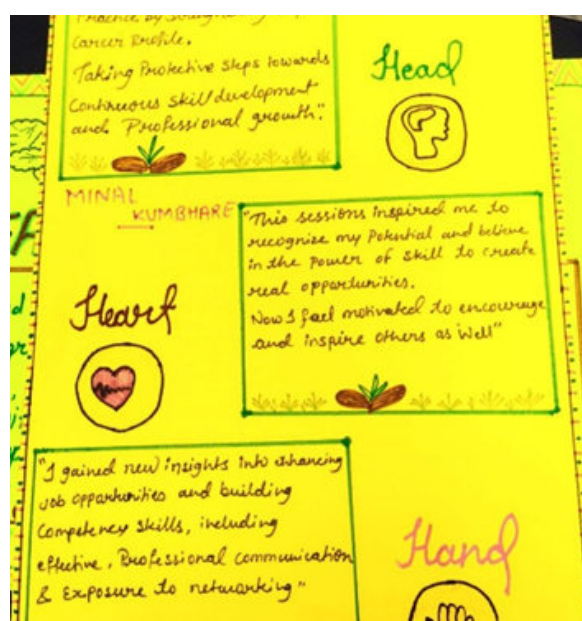 Practice by
Career Profile.
Taking Protective Steps towards
Continuous skill development
and Professional growth."
Head
MINAL
KUMBHARE
"This sessions inspired me to
recognize my Potential and believe
in the power of skill to create
real opportunities.
Now I feel motivated to encourage
and inspire others as well"
Heart
"I gained new insights into enhancing
job opportunities and building
Competency skills, including
effective, Professional communication
& Exposure to networking"
Hand